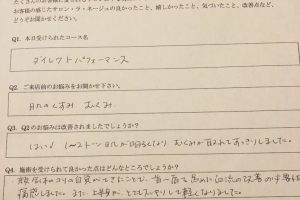 たくさんのお客様に愛され
お客様の感じたサロン・ラ・ネージュの良かったこと、嬉しかったこと、気づいたこと、改善点など、
どうぞお聞かせください。
Q1. 本日受けられたコース名
ダイレクトパフォーマンス
Q2. ご来店前のお悩みをお聞かせ下さい。
肌のくすみ むくみ
Q3. Q2 のお悩みは改善されましたでしょうか?
はい。1〜2トーン 肌が明るくなり むくみが取れてすっきりしました。
Q4. 施術を受けられて良かった点はどんなところでしょうか?
コリの自覚ができたことで、首〜肩を含めた血流の改善の必要性を
痛感しました。また、上半身が、とてもスッキリして軽くなりました。